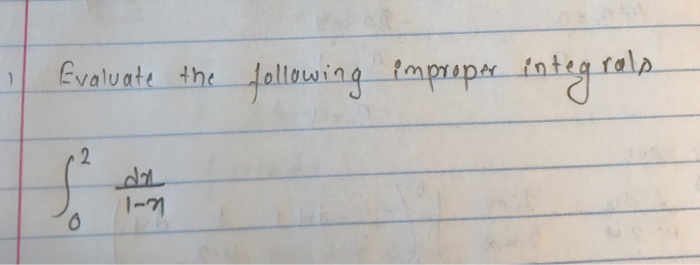 ) Evaluate the following improper integrals
∫₀² dx/1-x